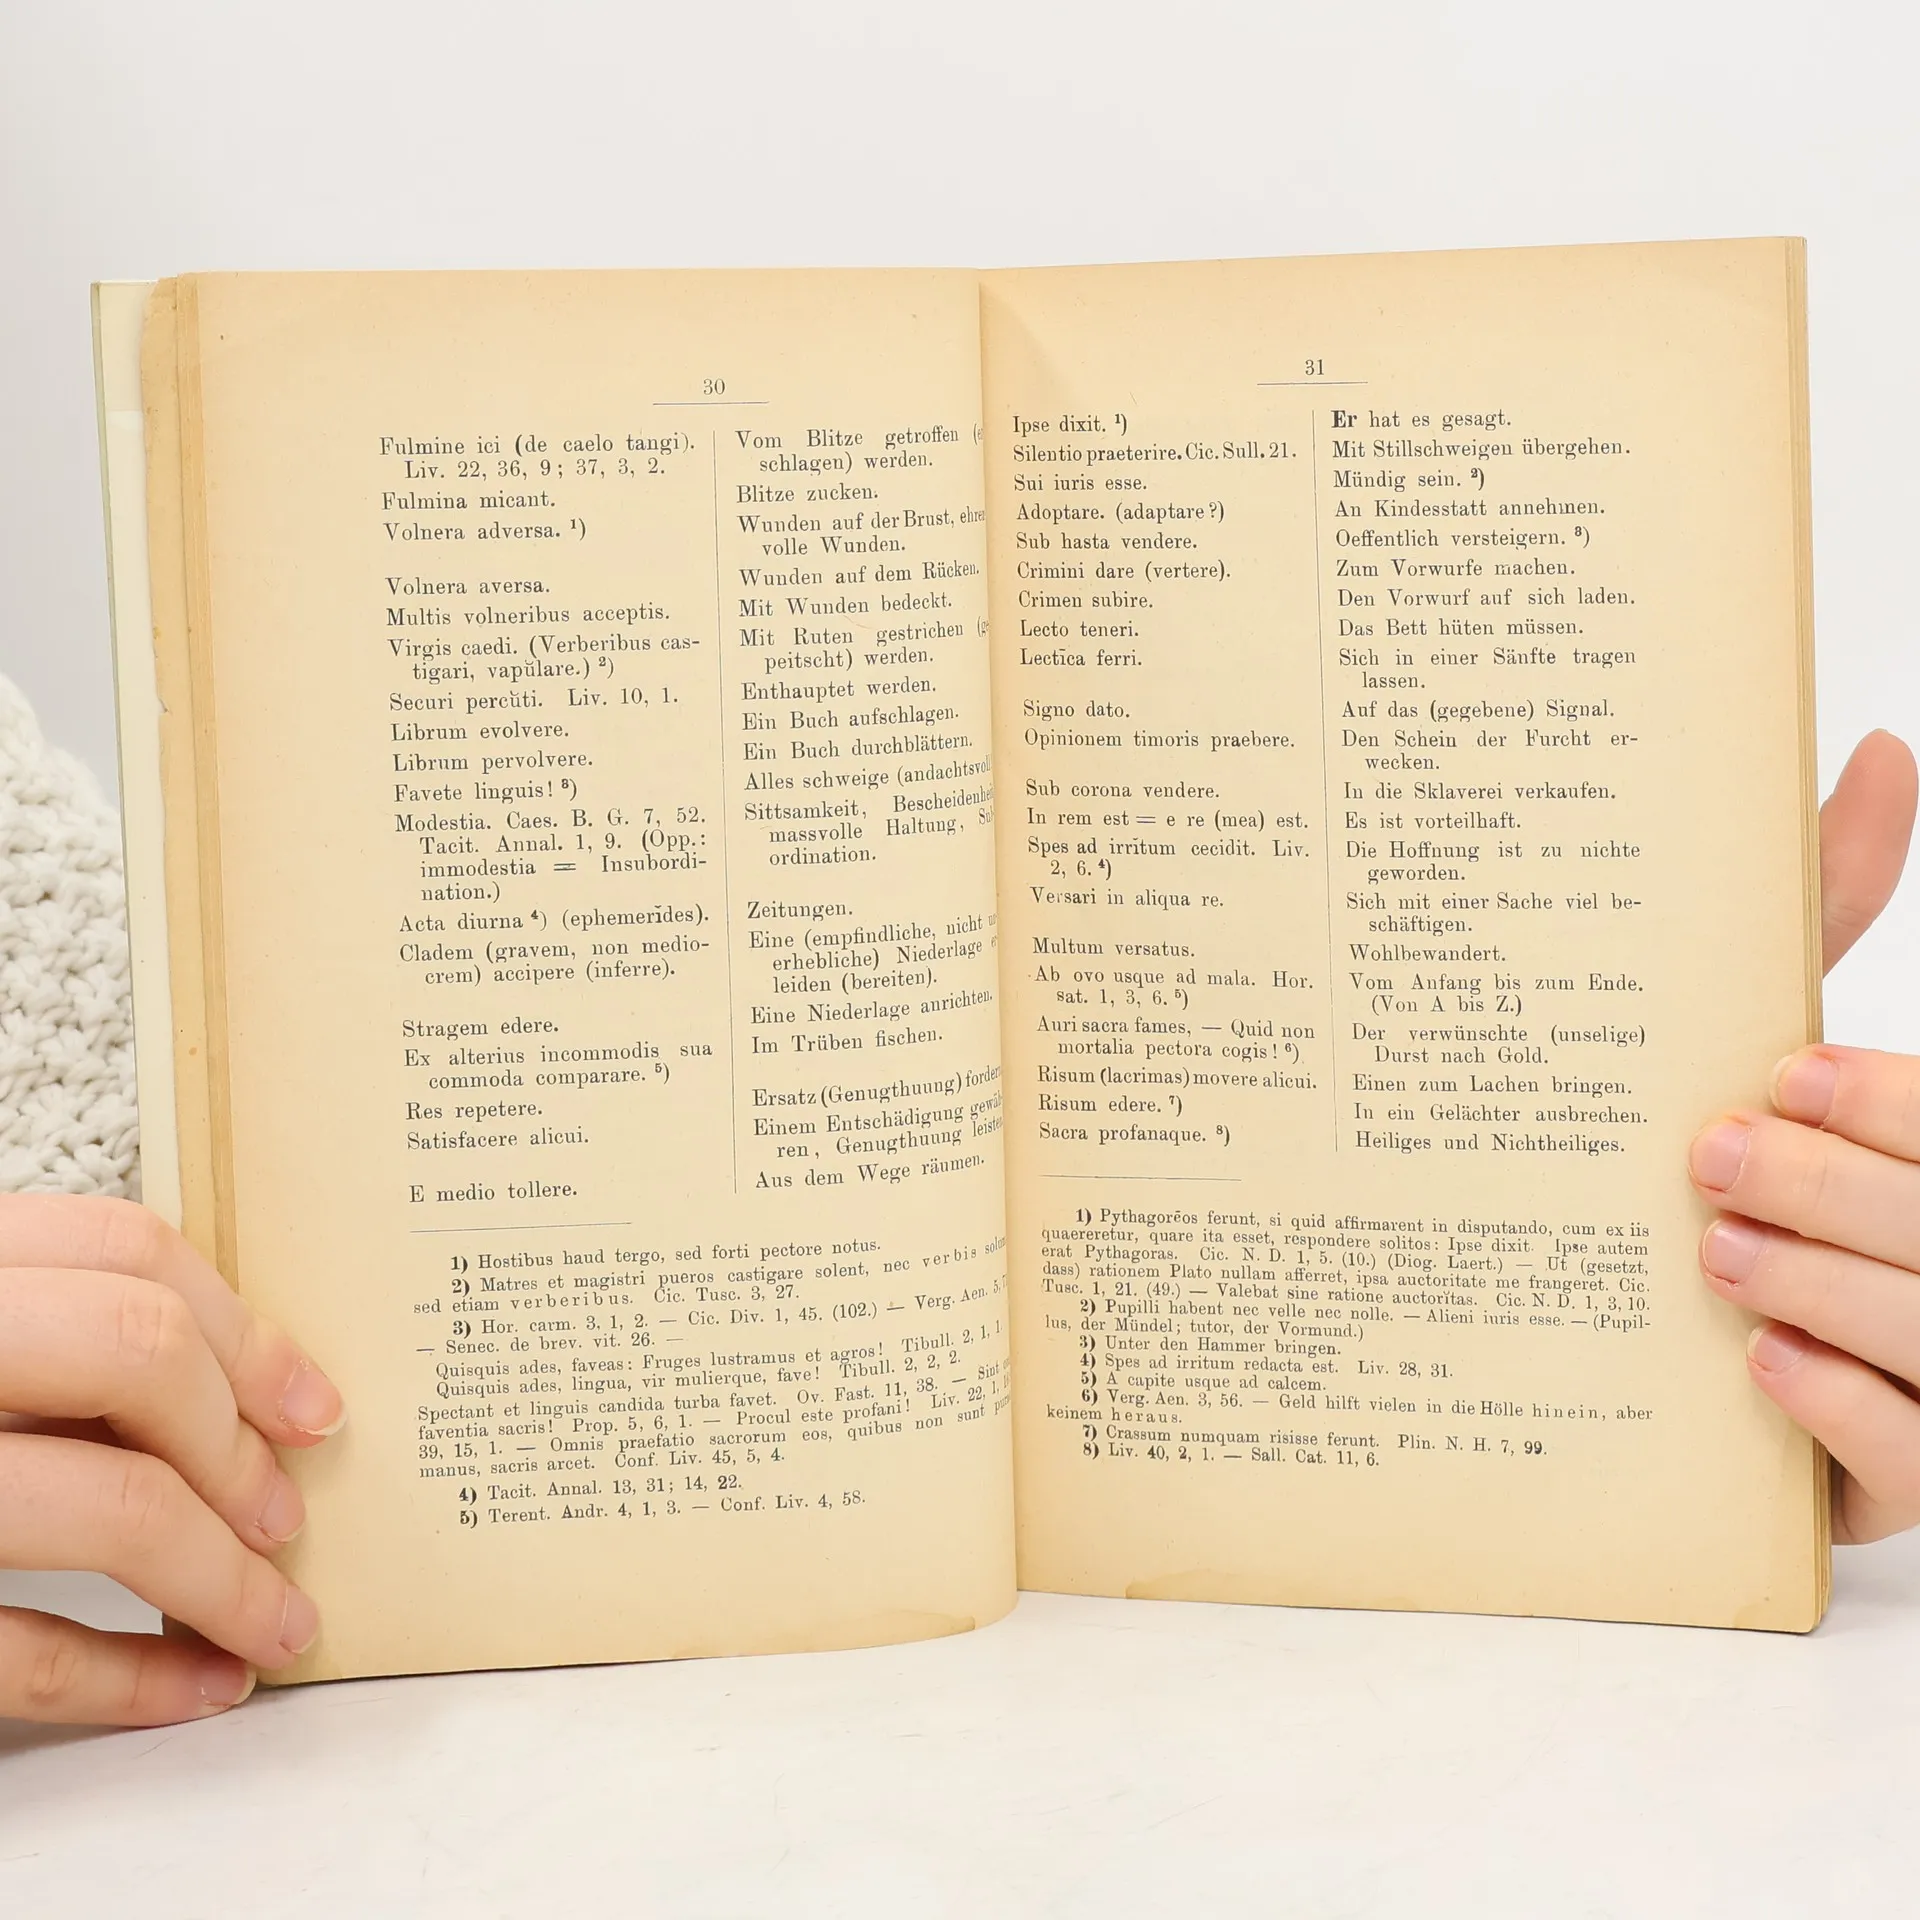 30
Fulmine ici (de caelo tangi).
Liv. 22, 36, 9; 37, 3, 2.
Fulmina micant.
Volnera adversa. ¹)
Volnera aversa.
Multis volneribus acceptis.
Virgis caedi. (Verberibus cas-
tigari, vapŭlare.) ²)
Securi percŭti. Liv. 10, 1.
Librum evolvere.
Librum pervolvere.
Favete linguis! ³)
Modestia. Caes. B. G. 7, 52.
Tacit. Annal. 1, 9. (Opp.:
immodestia = Insubordi-
nation.)
Acta diurna ⁴) (ephemerĭdes).
Cladem (gravem, non medio-
crem) accipere (inferre).
Stragem edere.
Ex alterius incommodis sua
commoda comparare. ⁵)
Res repetere.
Satisfacere alicui.
E medio tollere.
Vom Blitze getroffen
schlagen) werden.
Blitze zucken.
Wunden auf der Brust,
volle Wunden.
Wunden auf dem Rücken.
Mit Wunden bedeckt.
Mit Ruten gestrichen
peitscht) werden.
Enthauptet werden.
Ein Buch aufschlagen.
Ein Buch durchblättern.
Alles schweige
Sittsamkeit,
massvolle Haltung,
ordination.
Zeitungen.
Eine (empfindliche, nicht
erhebliche) Niederlage
leiden (bereiten).
Eine Niederlage anrichten.
Im Trüben fischen.
Ersatz (Genugthuung)
Einem Entschädigung
ren, Genugthuung
Aus dem Wege räumen.
1) Hostibus haud tergo, sed forti pectore notus.
2) Matres et magistri pueros castigare solent, nec verbis
sed etiam verberibus. Cic. Tusc. 3, 27.
3) Hor. carm. 3, 1, 2. — Cic. Div. 1, 45. (102.) — Verg. Aen. 5,
— Senec. de brev. vit. 26. —
Quisquis ades, faveas: Fruges lustramus et agros! Tibull. 2, 1, 1.
Quisquis ades, lingua, vir mulierque, fave! Tibull. 2, 2, 2.
Spectant et linguis candida turba favet. Ov. Fast. 11, 38. — Sint
faventia sacris! Prop. 5, 6, 1. — Procul este profani! Liv. 22, 1,
39, 15, 1. — Omnis praefatio sacrorum eos, quibus non sunt
manus, sacris arcet. Conf. Liv. 45, 5, 4.
4) Tacit. Annal. 13, 31; 14, 22.
5) Terent. Andr. 4, 1, 3. — Conf. Liv. 4, 58.
31
Ipse dixit. ¹)
Silentio praeterire. Cic. Sull. 21.
Sui iuris esse.
Adoptare. (adaptare?)
Sub hasta vendere.
Crimini dare (vertere).
Crimen subire.
Lecto teneri.
Lectīca ferri.
Signo dato.
Opinionem timoris praebere.
Sub corona vendere.
In rem est = e re (mea) est.
Spes ad irrĭtum cecidit. Liv.
2, 6. ⁴)
Versari in aliqua re.
Multum versatus.
Ab ovo usque ad mala. Hor.
sat. 1, 3, 6. ⁵)
Auri sacra fames, — Quid non
mortalia pectora cogis! ⁶)
Risum (lacrimas) movere alicui.
Risum edere. ⁷)
Sacra profanaque. ⁸)
Er hat es gesagt.
Mit Stillschweigen übergehen.
Mündig sein. ²)
An Kindesstatt annehmen.
Oeffentlich versteigern. ³)
Zum Vorwurfe machen.
Den Vorwurf auf sich laden.
Das Bett hüten müssen.
Sich in einer Sänfte tragen
lassen.
Auf das (gegebene) Signal.
Den Schein der Furcht er-
wecken.
In die Sklaverei verkaufen.
Es ist vorteilhaft.
Die Hoffnung ist zu nichte
geworden.
Sich mit einer Sache viel be-
schäftigen.
Wohlbewandert.
Vom Anfang bis zum Ende.
(Von A bis Z.)
Der verwünschte (unselige)
Durst nach Gold.
Einen zum Lachen bringen.
In ein Gelächter ausbrechen.
Heiliges und Nichtheiliges.
1) Pythagorēos ferunt, si quid affirmarent in disputando, cum ex iis
quaereretur, quare ita esset, respondere solitos: Ipse dixit. Ipse autem
erat Pythagoras. Cic. N. D. 1, 5. (10.) (Diog. Laert.) — Ut (gesetzt,
dass) rationem Plato nullam afferret, ipsa auctoritate me frangeret. Cic.
Tusc. 1, 21. (49.) — Valebat sine ratione auctorĭtas. Cic. N. D. 1, 3, 10.
2) Pupilli habent nec velle nec nolle. — Alieni iuris esse. — (Pupil-
lus, der Mündel; tutor, der Vormund.)
3) Unter den Hammer bringen.
4) Spes ad irritum redacta est. Liv. 28, 31.
5) A capite usque ad calcem.
6) Verg. Aen. 3, 56. — Geld hilft vielen in die Hölle hinein, aber
keinem heraus.
7) Crassum numquam risisse ferunt. Plin. N. H. 7, 99.
8) Liv. 40, 2, 1. — Sall. Cat. 11, 6.